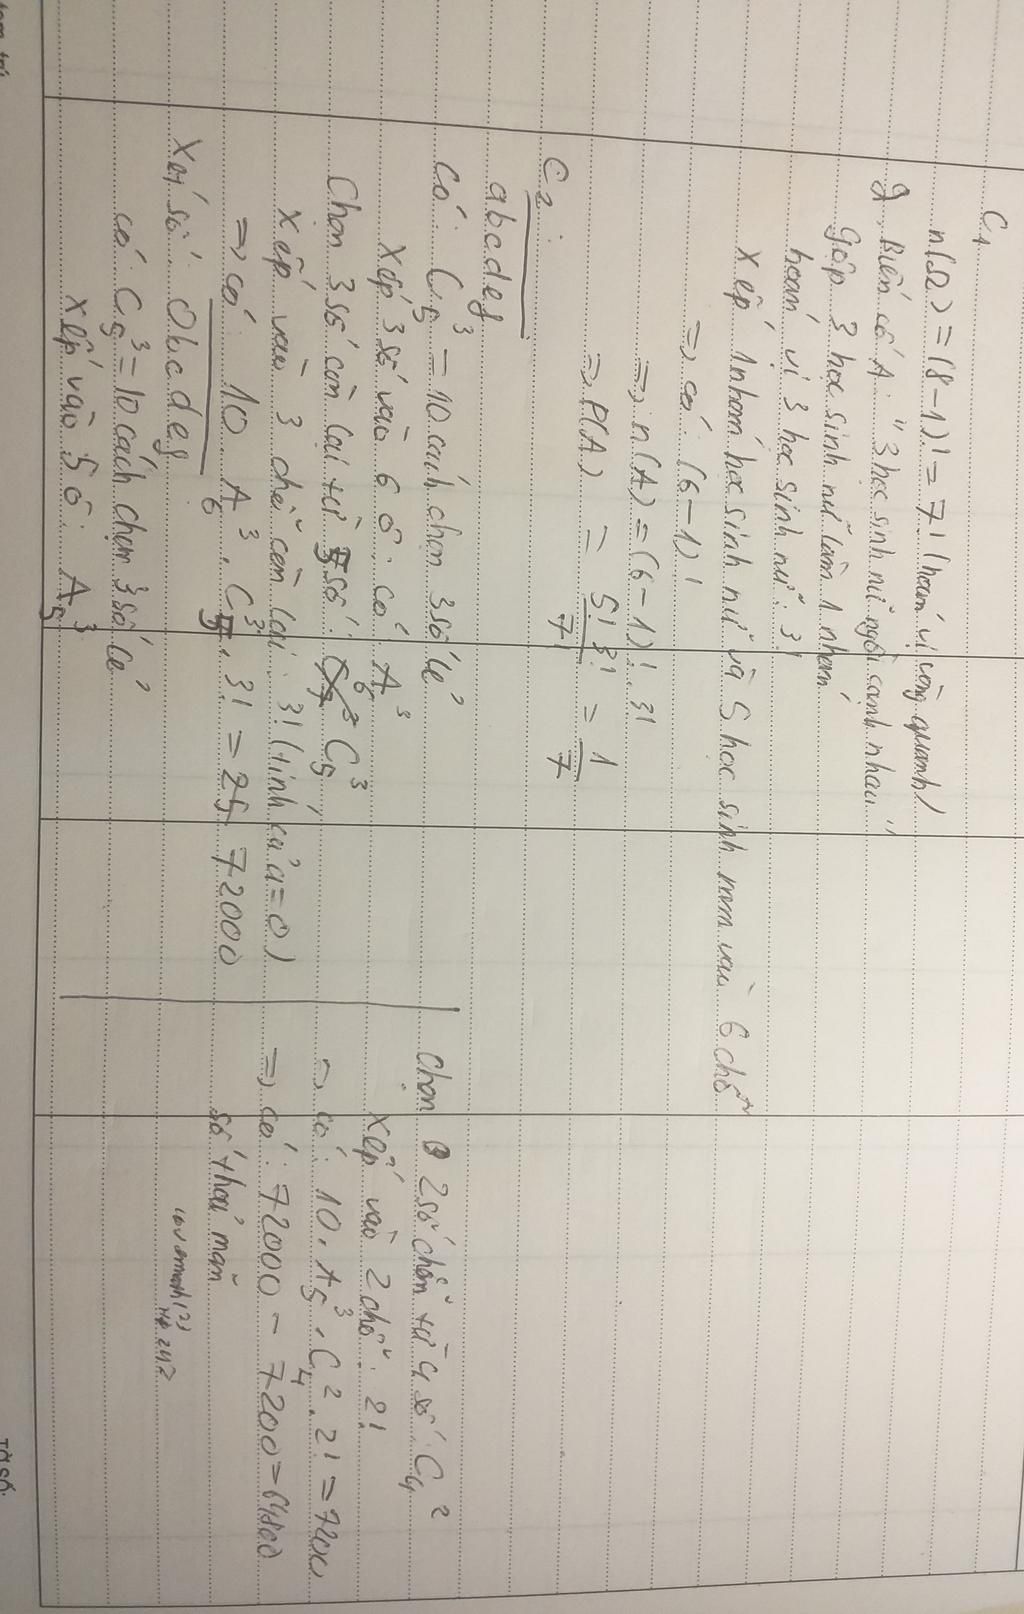 C1
n(Ω) = (8-1)! = 7! (hoán vị vòng quanh)
g, Biến cố A: "3 học sinh nữ ngồi cạnh nhau"
Gộp 3 học sinh nữ làm 1 nhóm
hoán vị 3 học sinh nữ: 3!
Xếp 1 nhóm học sinh nữ và 5 học sinh nam vào 6 chỗ
=> có: (6-1)!
=> n(A) = (6-1)!.3!
=> P(A) = 5!3!/7! = 1/7
C2:
abcdeg
Có: C₅³ = 10 cách chọn 3 số lẻ
Xếp 3 số vào 6 ô: có A₆³
Chọn 3 số còn lại từ 5 số: C₅³
Xếp vào 3 chỗ còn lại: 3! (tính cả a=0)
=> có: 10.A₆³.C₅³.3! = 72000
Xét số: 0bcdeg
có: C₅³ = 10 cách chọn 3 số lẻ
Xếp vào 5 ô: A₅³
Chọn 2 số chẵn từ 4 số: C₄²
Xếp vào 2 chỗ: 2!
=> có: 10.A₅³.C₄².2! = 7200
=> có: 72000 - 7200 = 64800
số thoả mãn